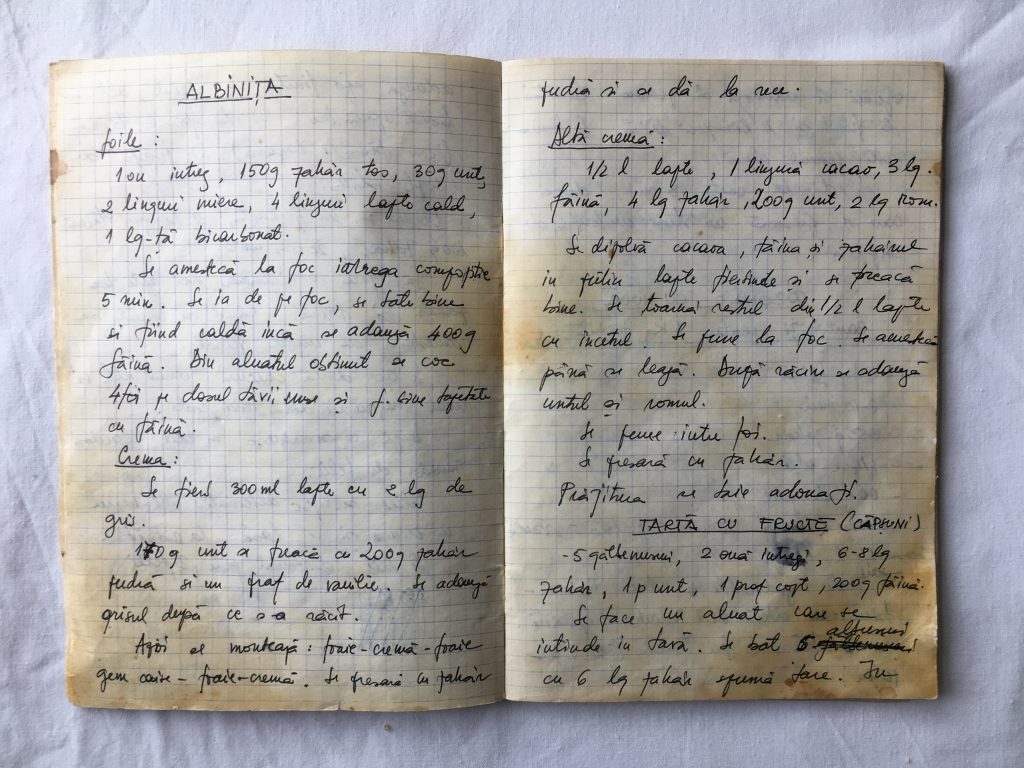 ALBINIȚA
foile :
1 ou întreg, 150g zahăr tos, 30g unt,
2 linguri miere, 4 linguri lapte cald,
1 lg-ță bicarbonat.
Se amestecă la foc întrega compoziție
5 min. Se ia de pe foc, se bate bine
și fiind caldă încă se adaugă 400g
făină. Din aluatul obținut se coc
4 foi pe dosul tăvii unse și f. bine tapetate
cu făină.
Crema :
Se fierb 300 ml lapte cu 2 lg de
griș.
170g unt se freacă cu 200g zahăr
pudră și un praf de vanilie. Se adaugă
grisul după ce s-a răcit.
Apoi se montează : foaie-cremă-foaie
gem caise - foaie-cremă. Se presară cu zahăr
pudră și se dă la rece.
Altă cremă :
1/2 l lapte, 1 lingură cacao, 3 lg.
făină, 4 lg zahăr, 200g unt, 2 lg rom.
Se dizolvă cacaoa, făina și zahărul
în puțin lapte fierbinte și se freacă
bine. Se toarnă restul din 1/2 l lapte
cu încetul. Se pune la foc. Se amestecă
până se leagă. După răcire se adaugă
untul și romul.
Se pune între foi.
Se presară cu zahăr.
Prăjitura se taie a doua zi.
TARTĂ CU FRUCTE (CĂPȘUNI)
- 5 gălbenușuri, 2 ouă întregi, 6-8 lg
zahăr, 1 p unt, 1 praf copt, 200g făină.
Se face un aluat care se
întinde în tavă. Se bat 6 albușuri
cu 6 lg zahăr spumă tare. În